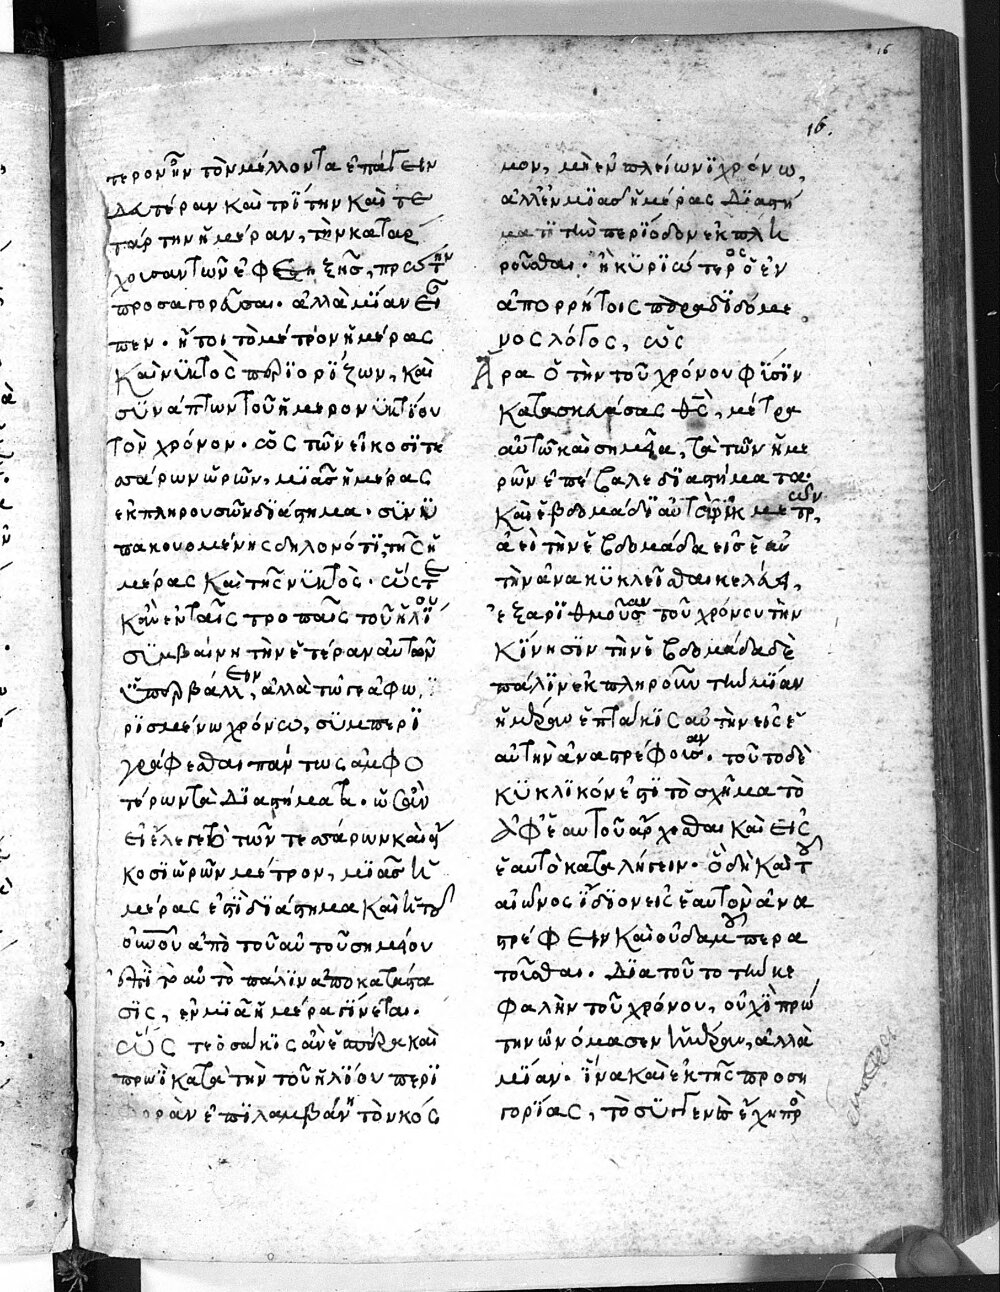 16
16.
τερον ἦν τὸν μέλλοντα ἐπάγειν
δευτέραν καὶ τρίτην καὶ τε
τάρτην ἡμέραν, τὴν κατάρ
χουσαν τῶν ἐφεξῆς, πρώτην
προσαγορεῦσαι. ἀλλὰ μίαν εἶ
πεν. ἤτοι τὸ μέτρον ἡμέρας
καὶ νυκτὸς περιορίζων, καὶ
συνάπτων τοῦ ἡμερονυκτίου
τὸν χρόνον. ὡς τῶν εἰκοσιτε
σσάρων ὡρῶν, μιᾶς ἡμέρας
ἐκπληρουσῶν διάστημα. συνυ
πακουομένης δηλονότι, τῆς ἡ
μέρας καὶ τῆς νυκτὸς. ὥστε
κἂν ἐν ταῖς τροπαῖς τοῦ ἡλίου
συμβαίνη τὴν ἑτέραν αὐτῶν
ὑπερβάλλειν, ἀλλὰ τῶ γε ἀφω
ρισμένω χρόνω, συμπερι
γράφεσθαι πάντως ἀμφο
τέρων τὰ διαστήματα. ὡσὰν
εἰ ἔλεγε τὸ τῶν τεσσάρων καὶ εἰ
κοσι ὡρῶν μέτρον, μιᾶς ἡ
μέρας ἐστὶ διάστημα καὶ ἡ τοῦ
οὐνοῦ ἀπὸ τοῦ αὐτοῦ σημείου
ἐπὶ τὸ αὐτὸ πάλιν ἀποκατάστα
σις, ἐν μιᾶ ἡμέρα γίνεται.
ὥς τε ὁσάκις ἂν ἑσπέρα καὶ
πρωῒ κατὰ τὴν τοῦ ἡλίου περι
φορὰν ἐπιλαμβάνη τὸν κός
μον, μὴ ἐν πλείωνι χρόνω,
ἀλλ' ἐν μιᾶς ἡμέρας διαστή
ματι τὴν περίοδον ἐκπλη
ροῦσθαι. ἢ κυριώτερος ὁ ἐν
ἀπορρήτοις παραδιδόμε
νος λόγος, ὡς
Ἄρα ὁ τὴν τοῦ χρόνου φύσιν
κατασκευάσας θς, μέτρα
αὐτῶ καὶ σημεῖα, τὰ τῶν ἡμε
ρῶν ἐπέβαλε διαστήματα.
καὶ ἑβδομάδι αὐτὸν ἐκμετρῶν,
ἀεὶ τὴν ἑβδομάδα εἰς ἑαυ
τὴν ἀνακυκλεῖσθαι κελεύει,
ἐξαριθμοῦσαν τοῦ χρόνου τὴν
κίνησιν τὴν ἑβδομάδα δὲ
πάλιν ἐκπληροῦν τὴν μίαν
ἡμέραν ἑπτάκις αὐτὴν εἰς ἑ
αυτὴν ἀναστρέφουσαν. τοῦτο δὲ
κυκλικόν ἐστι τὸ σχῆμα τὸ
ἀφ' ἑαυτοῦ ἄρχεσθαι καὶ εἰς
ἑαυτὸ καταλήγειν. ὃ δὴ καὶ τοῦ
αἰῶνος ἴδιον εἰς ἑαυτὸν ἀνα
στρέφειν καὶ οὐδαμοῦ περα
τοῦσθαι. διὰ τοῦτο τὴν κε
φαλὴν τοῦ χρόνου, οὐχὶ πρώ
την ὠνόμασεν ἡμέραν, ἀλλὰ
μίαν. ἵνα καὶ ἐκ τῆς προση
γορίας, τὸ συγγενὲς ἔχη πρὸ